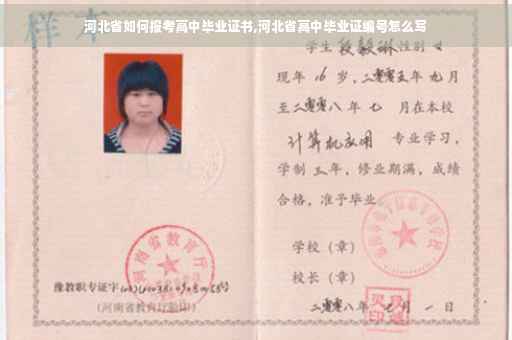 河北省如何报考高中毕业证书,河北省高中毕业证编号怎么写
样本
学生段毅琳性别女
现年16岁,二零零五年九月
至二零零八年七月在本校
计算机应用 专业学习,
学制三年,修业期满,成绩
合格,准予毕业。
学校(章)
校长(章)
二零零八年七月一日
河南省教育厅
豫教职专证字
(河南省教育厅验印)